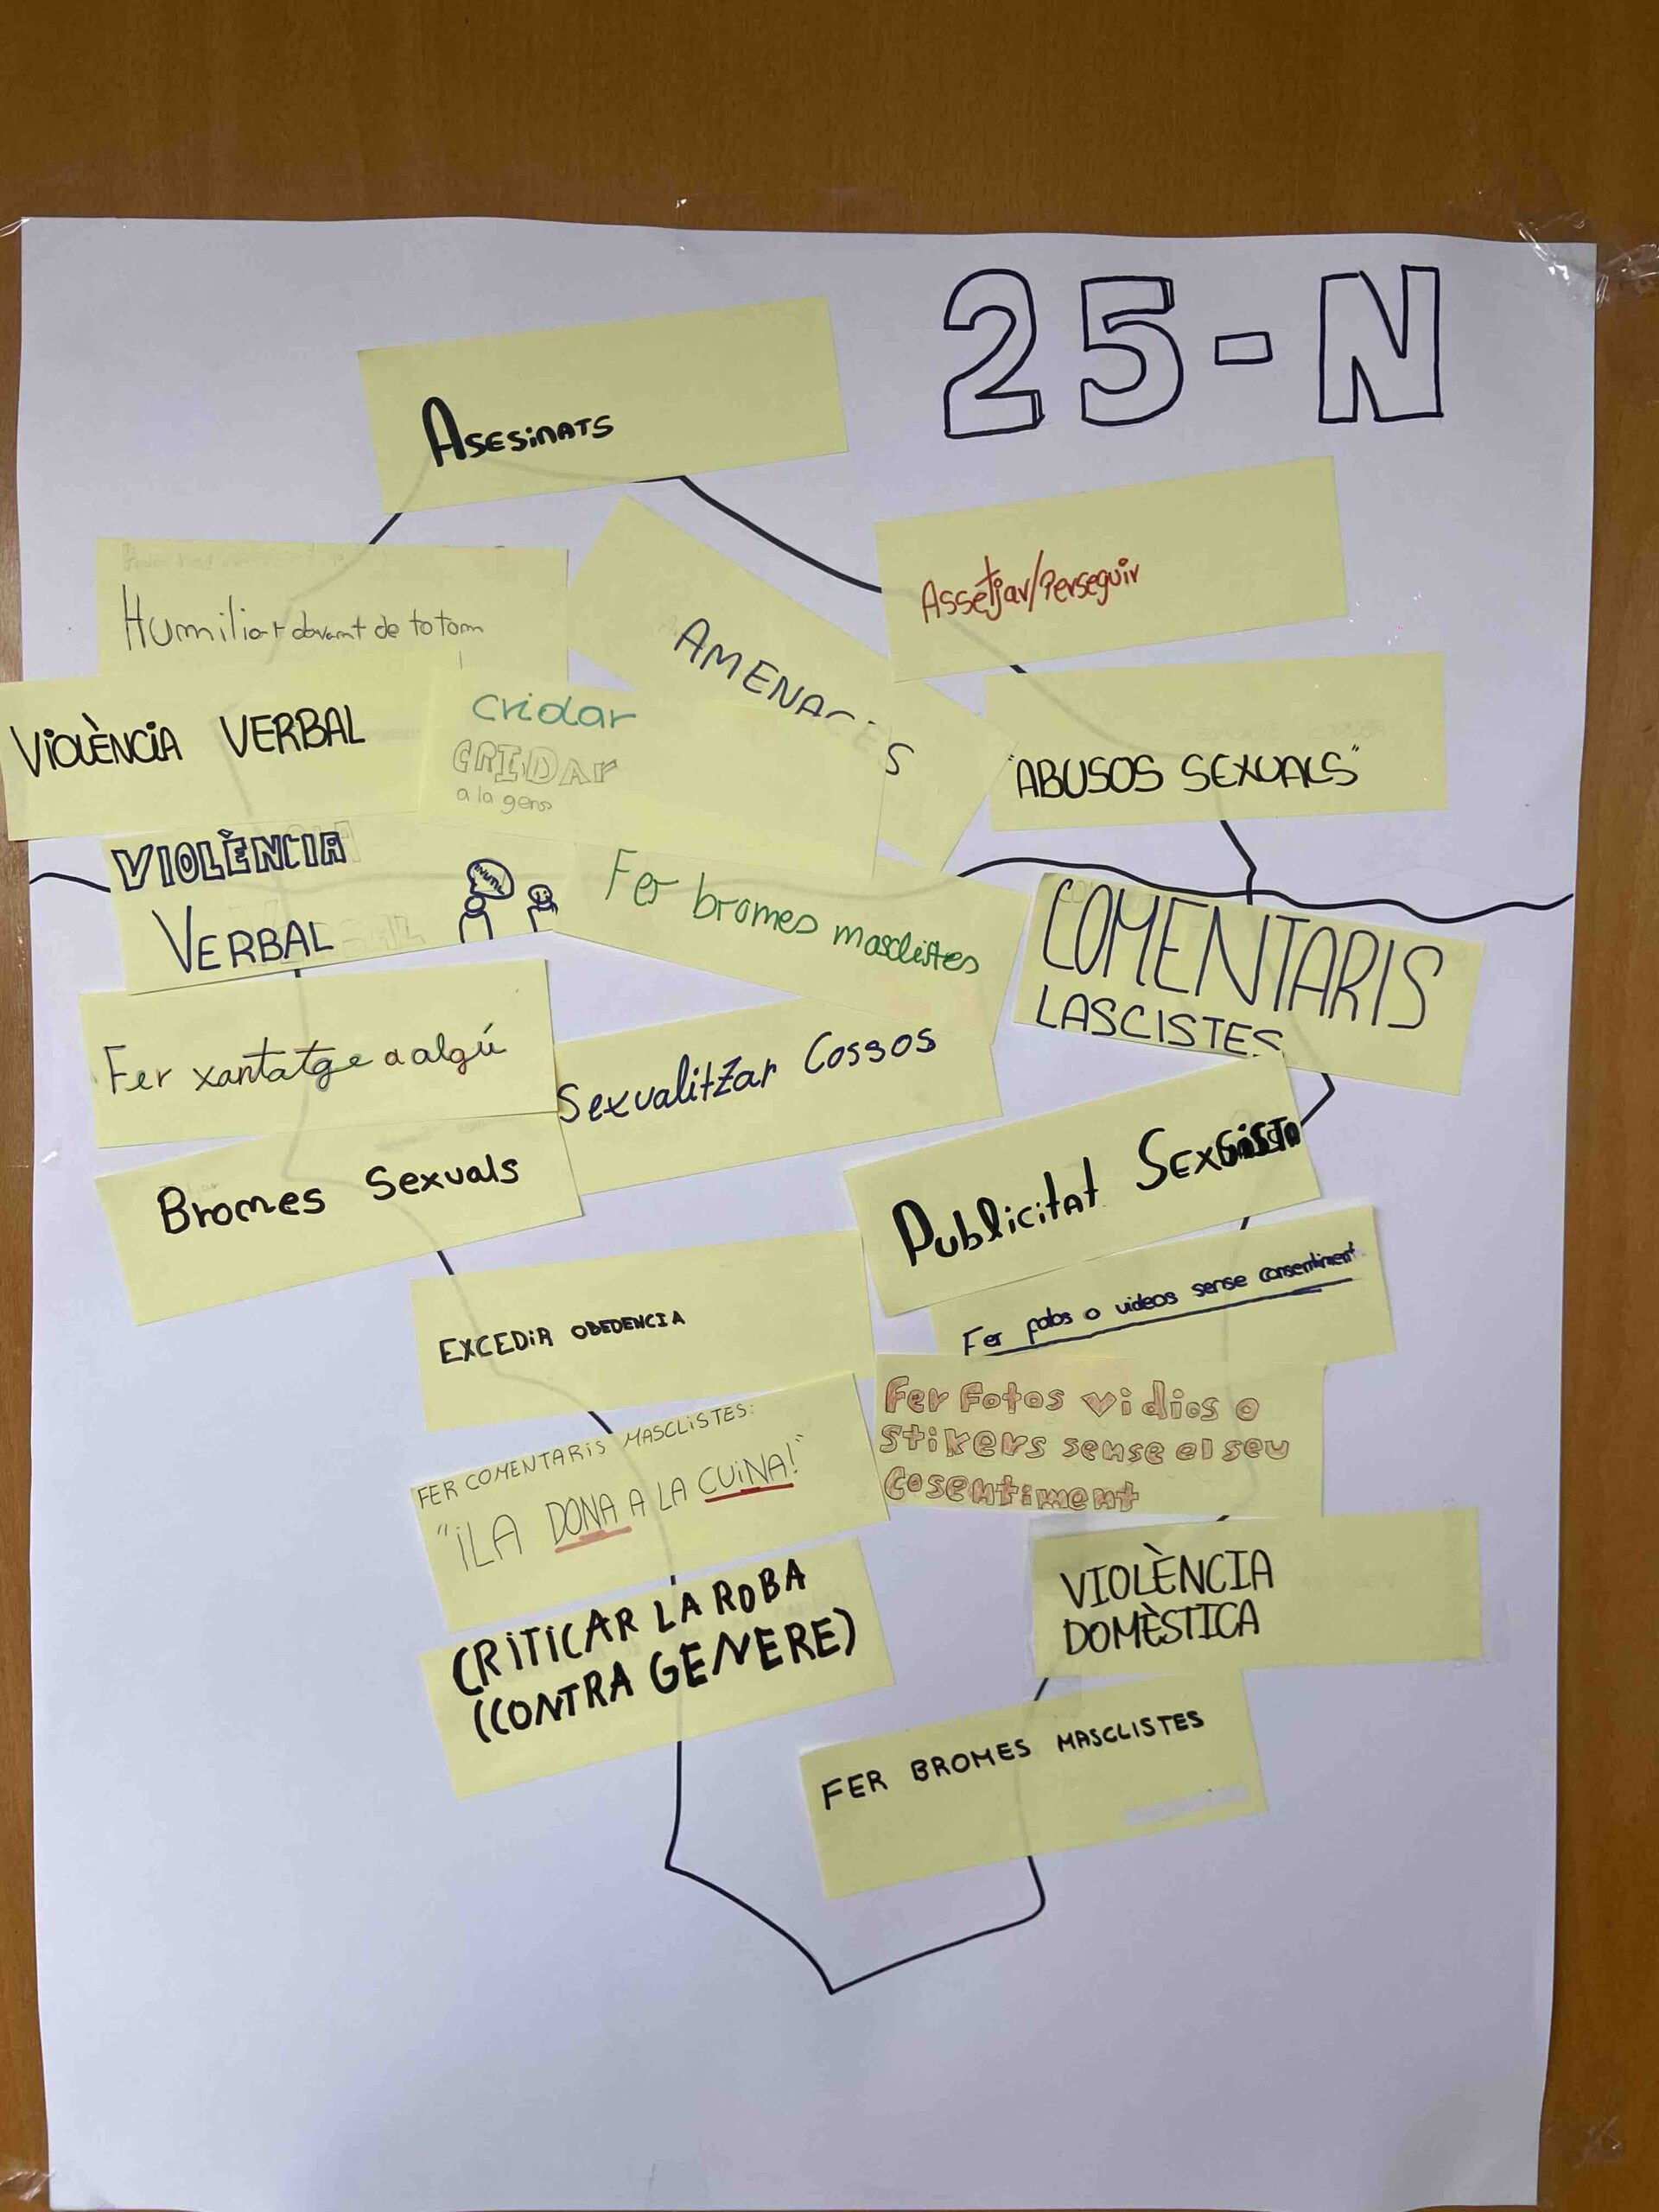 25-N
ASESINATS
Humiliar davant de totom
AMENACES
Assetjar/Perseguir
VIOLÈNCIA VERBAL
Cridar
CRIDAR
a la gens
"ABUSOS SEXUALS"
VIOLÈNCIA
VERBAL
Fer bromes masclistes
COMENTARIS
LASCISTES
Fer xantatge a algú
Sexualitzar Cossos
Bromes Sexuals
Publicitat
EXCEDIR OBEDENCIA
Fer fotos o videos sense consentiment
FER COMENTARIS MASCLISTES:
"¡LA DONA A LA CUINA!"
Fer Fotos vidios o
stikers sense el seu
Cosentiment
CRITICAR LA ROBA
(CONTRA GENERE)
VIOLÈNCIA
DOMÈSTICA
FER BROMES MASCLISTES